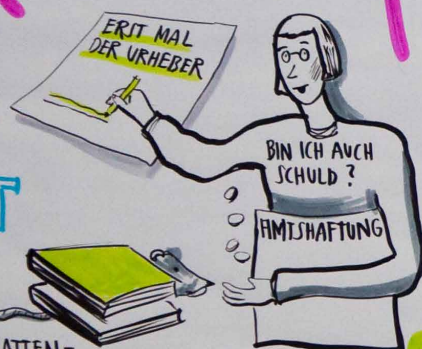 ERST MAL
DER URHEBER
BIN ICH AUCH
SCHULD?
AMTSHAFTUNG
T
ATTEN-